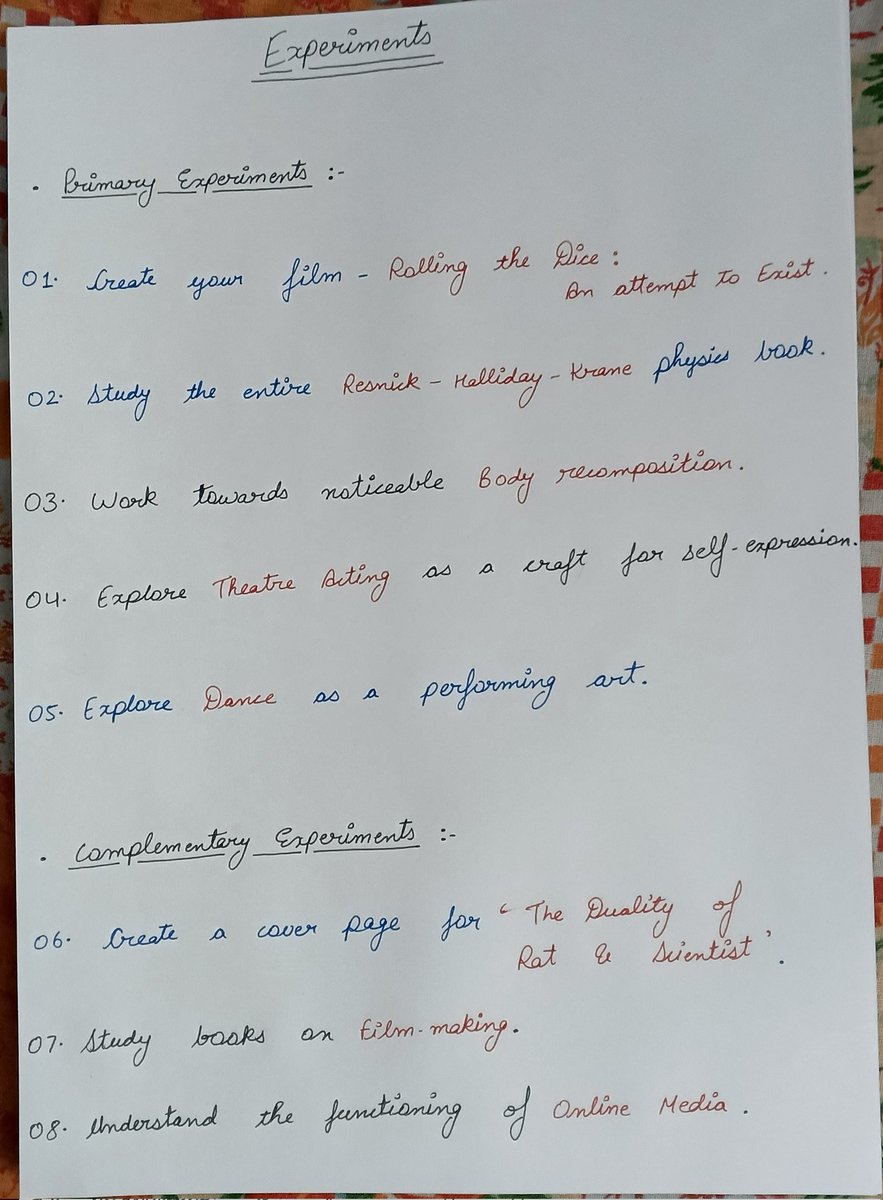 Experiments
. Primary Experiments :-
01. Create your film - Rolling the Dice :
An attempt to Exist .
02. Study the entire Resnick - Halliday - Krane physics book.
03. Work towards noticeable Body recomposition.
04. Explore Theatre Acting as a craft for self-expression.
05. Explore Dance as a performing art.
. Complementary Experiments :-
06. Create a cover page for ‘ The Duality of
Rat & Scientist ’ .
07. Study books on Film-making.
08. Understand the functioning of Online Media .